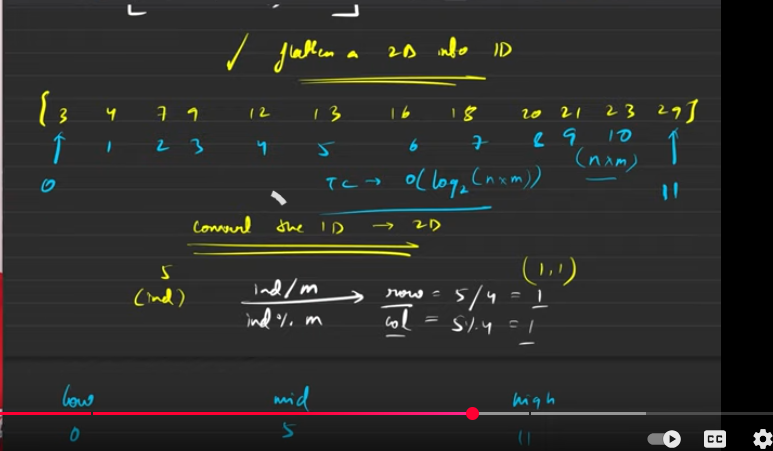 ✓ flatten a 2D into 1D
[3 4 7 9 12 13 16 18 20 21 23 29]
0 1 2 3 4 5 6 7 8 9 10 11
(n×m)
TC → O(log₂(n×m))
convert the 1D → 2D
5
(ind)
ind/m
ind % m
(1,1)
row = 5/4 = 1
col = 5%4 = 1
low mid high
0 5 11
CC